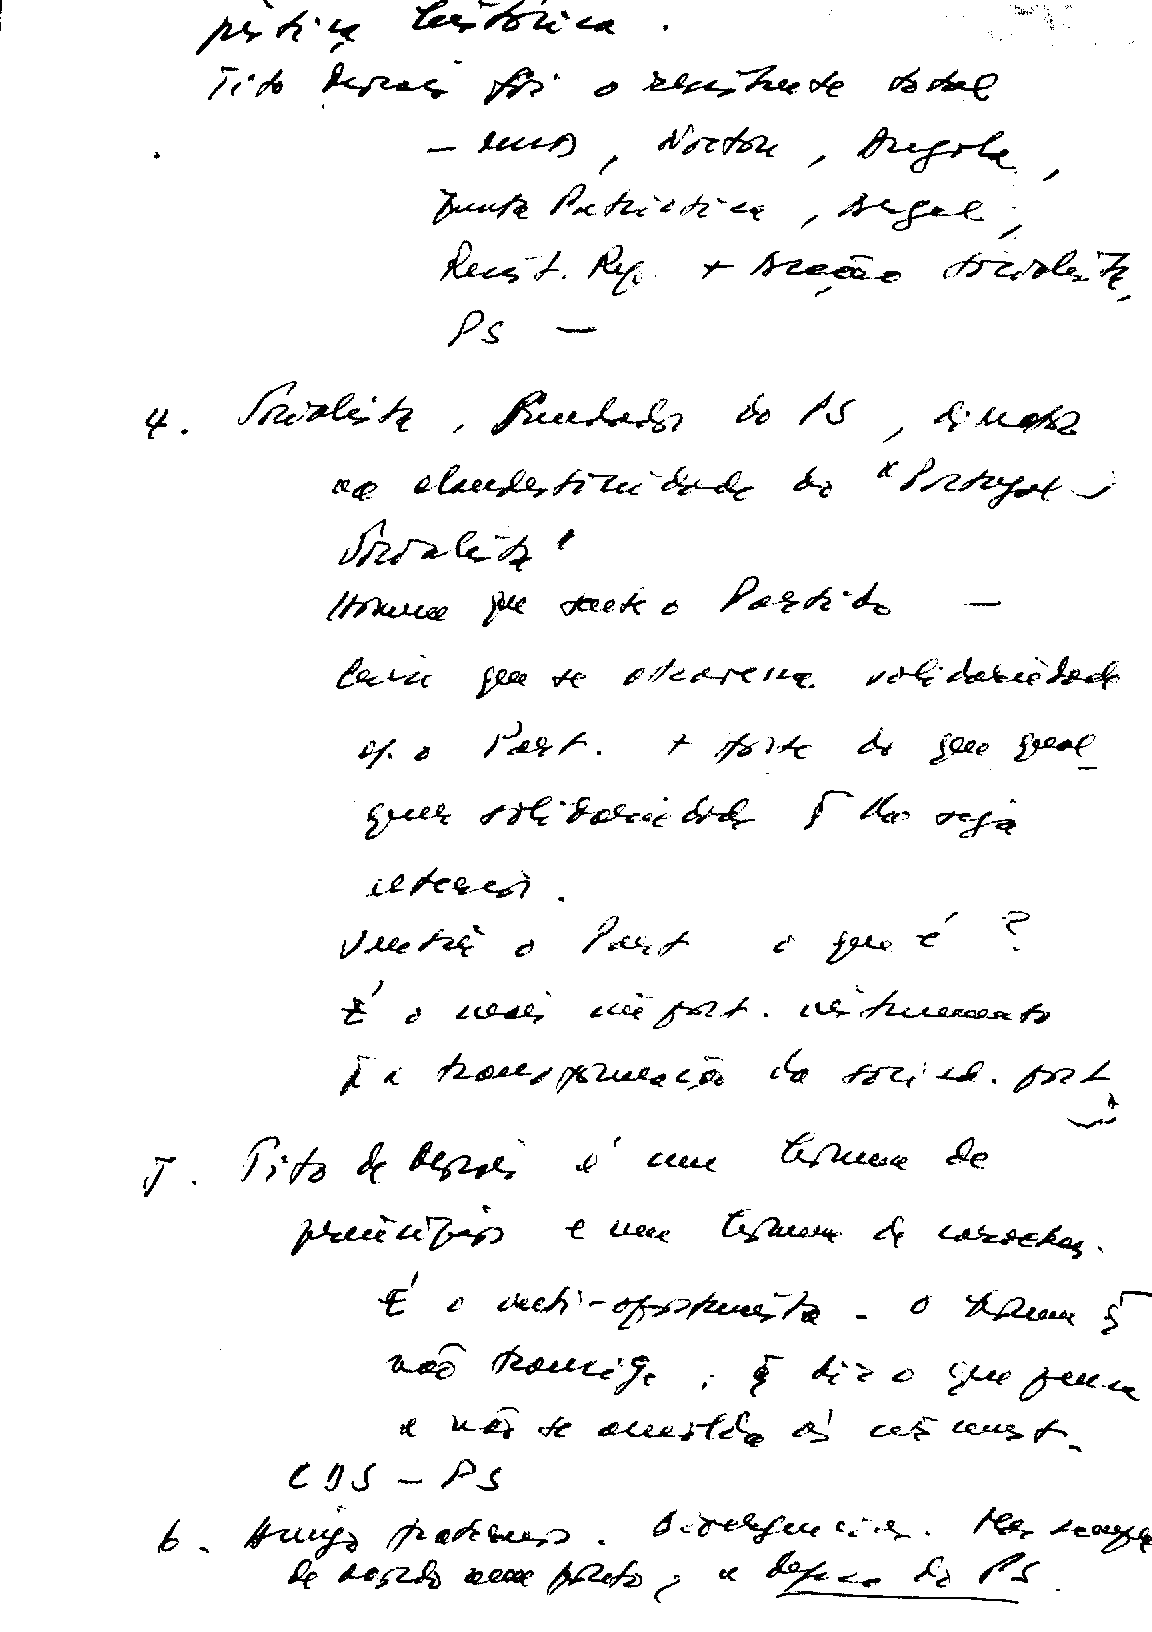 justiça histórica.
Tito Morais foi o resistente total
– MUD, Norton, Angola,
Junta Patriótica, Argel,
Resist. Rep. + Acção Socialista,
PS –
4. Socialista, Fundador do PS, director
na clandestinidade do "Portugal
Socialista"
Homem que sente o Partido –
sem que se obscureça solidariedade
c/. o Part. + forte do que qual-
quer solidariedade q̄ não seja
interior.
Mas o Part o que é?
É o mais import. instrumento
p̄ a transformação da socied. port.
5. Tito de Morais é um homem de
princípios e um homem de carácter.
É o anti-oportunista. O homem q̄
não transige, q̄ diz o que pensa
e não se amolda às circunst.
CDS – PS
6. Amigo fraterno. Divergências. Mas sempre
de acordo num ponto: a defesa do PS.